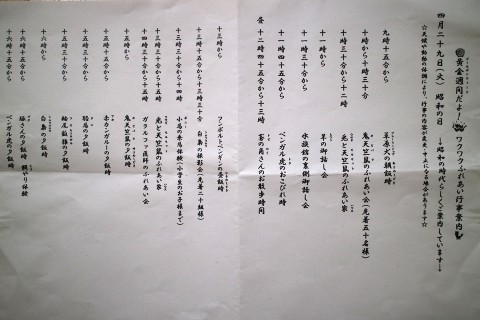 黄金週間だよ！ ワクワクふれあい行事案内
四月二十九日(火) 昭和の日 →昭和の時代らしくご案内しています！
☆天候や動物の体調により、行事の内容が変更・中止となる場合があります☆
九時十五分から 草原犬の朝飯時
十時から十時三十分 鬼天竺鼠のふれあい会(先着五十名様)
十時三十分から 兎と天竺鼠のふれあい家
十一時から 羊の御話し会
十一時十五分から 水族館の裏側御話し会
十一時四十五分から ベンガル虎のおこびれ時
昼 十二時四十五分から十三時 家の鳥さんのお散歩時間
十三時から フンボルトペンギンの昼飯時
十三時十五分から 白鳥の撮影会(先着二十組様)
十三時三十分から 小馬の乗馬体験(小学生のお子様まで)
十三時三十分から十四時 兎と天竺鼠のふれあい家
十四時三十分から十五時 ガラルファ医師のふれあい会
十五時から 鬼天竺鼠の夕飯時
十五時十五分から 赤カンガルーの夕飯時
十五時三十分から 駱馬の夕飯時
十五時四十五分から 輪尾狐猿の夕飯時
十六時から 白鳥の夕飯時
十六時十五分から 豚さんの夕飯時 餌やり体験
十六時四十五分から ベンガル虎の夕飯時